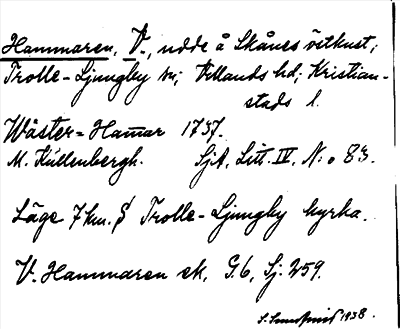 Hammaren, V., udde å Skånes östkust;
Trolle-Ljungby sn; Villands hd; Kristian-
stads l.
Wäster-Ham̄ar 1737.
M. Kullenbergh. SjA, Litt. IV, N:o 83.
Läge 7 km. S Trolle-Ljungby kyrka.
V. Hammaren ek, G.6, Sj. 259.
1938.